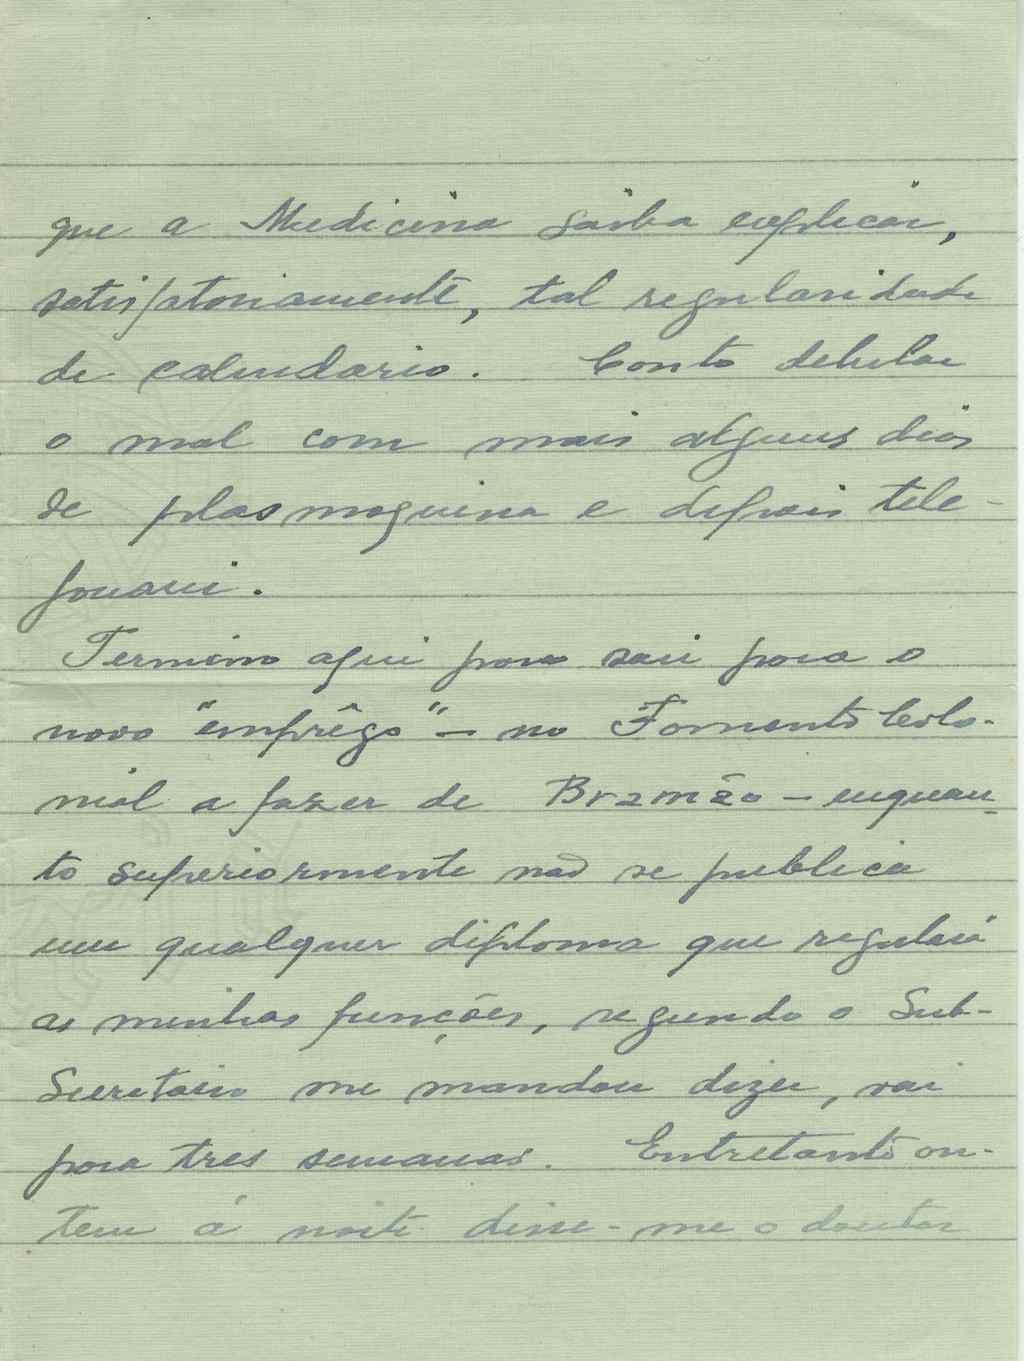 que a Medicina saiba explicar,
satisfatoriamente, tal regularidade
de calendario. Conto debelar
o mal com mais alguns dias
de plasmoquina e depois tele-
fonarei.
Termino aqui para sair para o
novo "emprêgo" - no Fomento Colo-
nial a fazer de Bramão - enquan-
to superiormente não se publica
um qualquer diploma que regulará
as minhas funções, segundo o Sub-
Secretario me mandou dizer, vai
para tres semanas. Entretanto on-
tem á noite disse-me o doutor